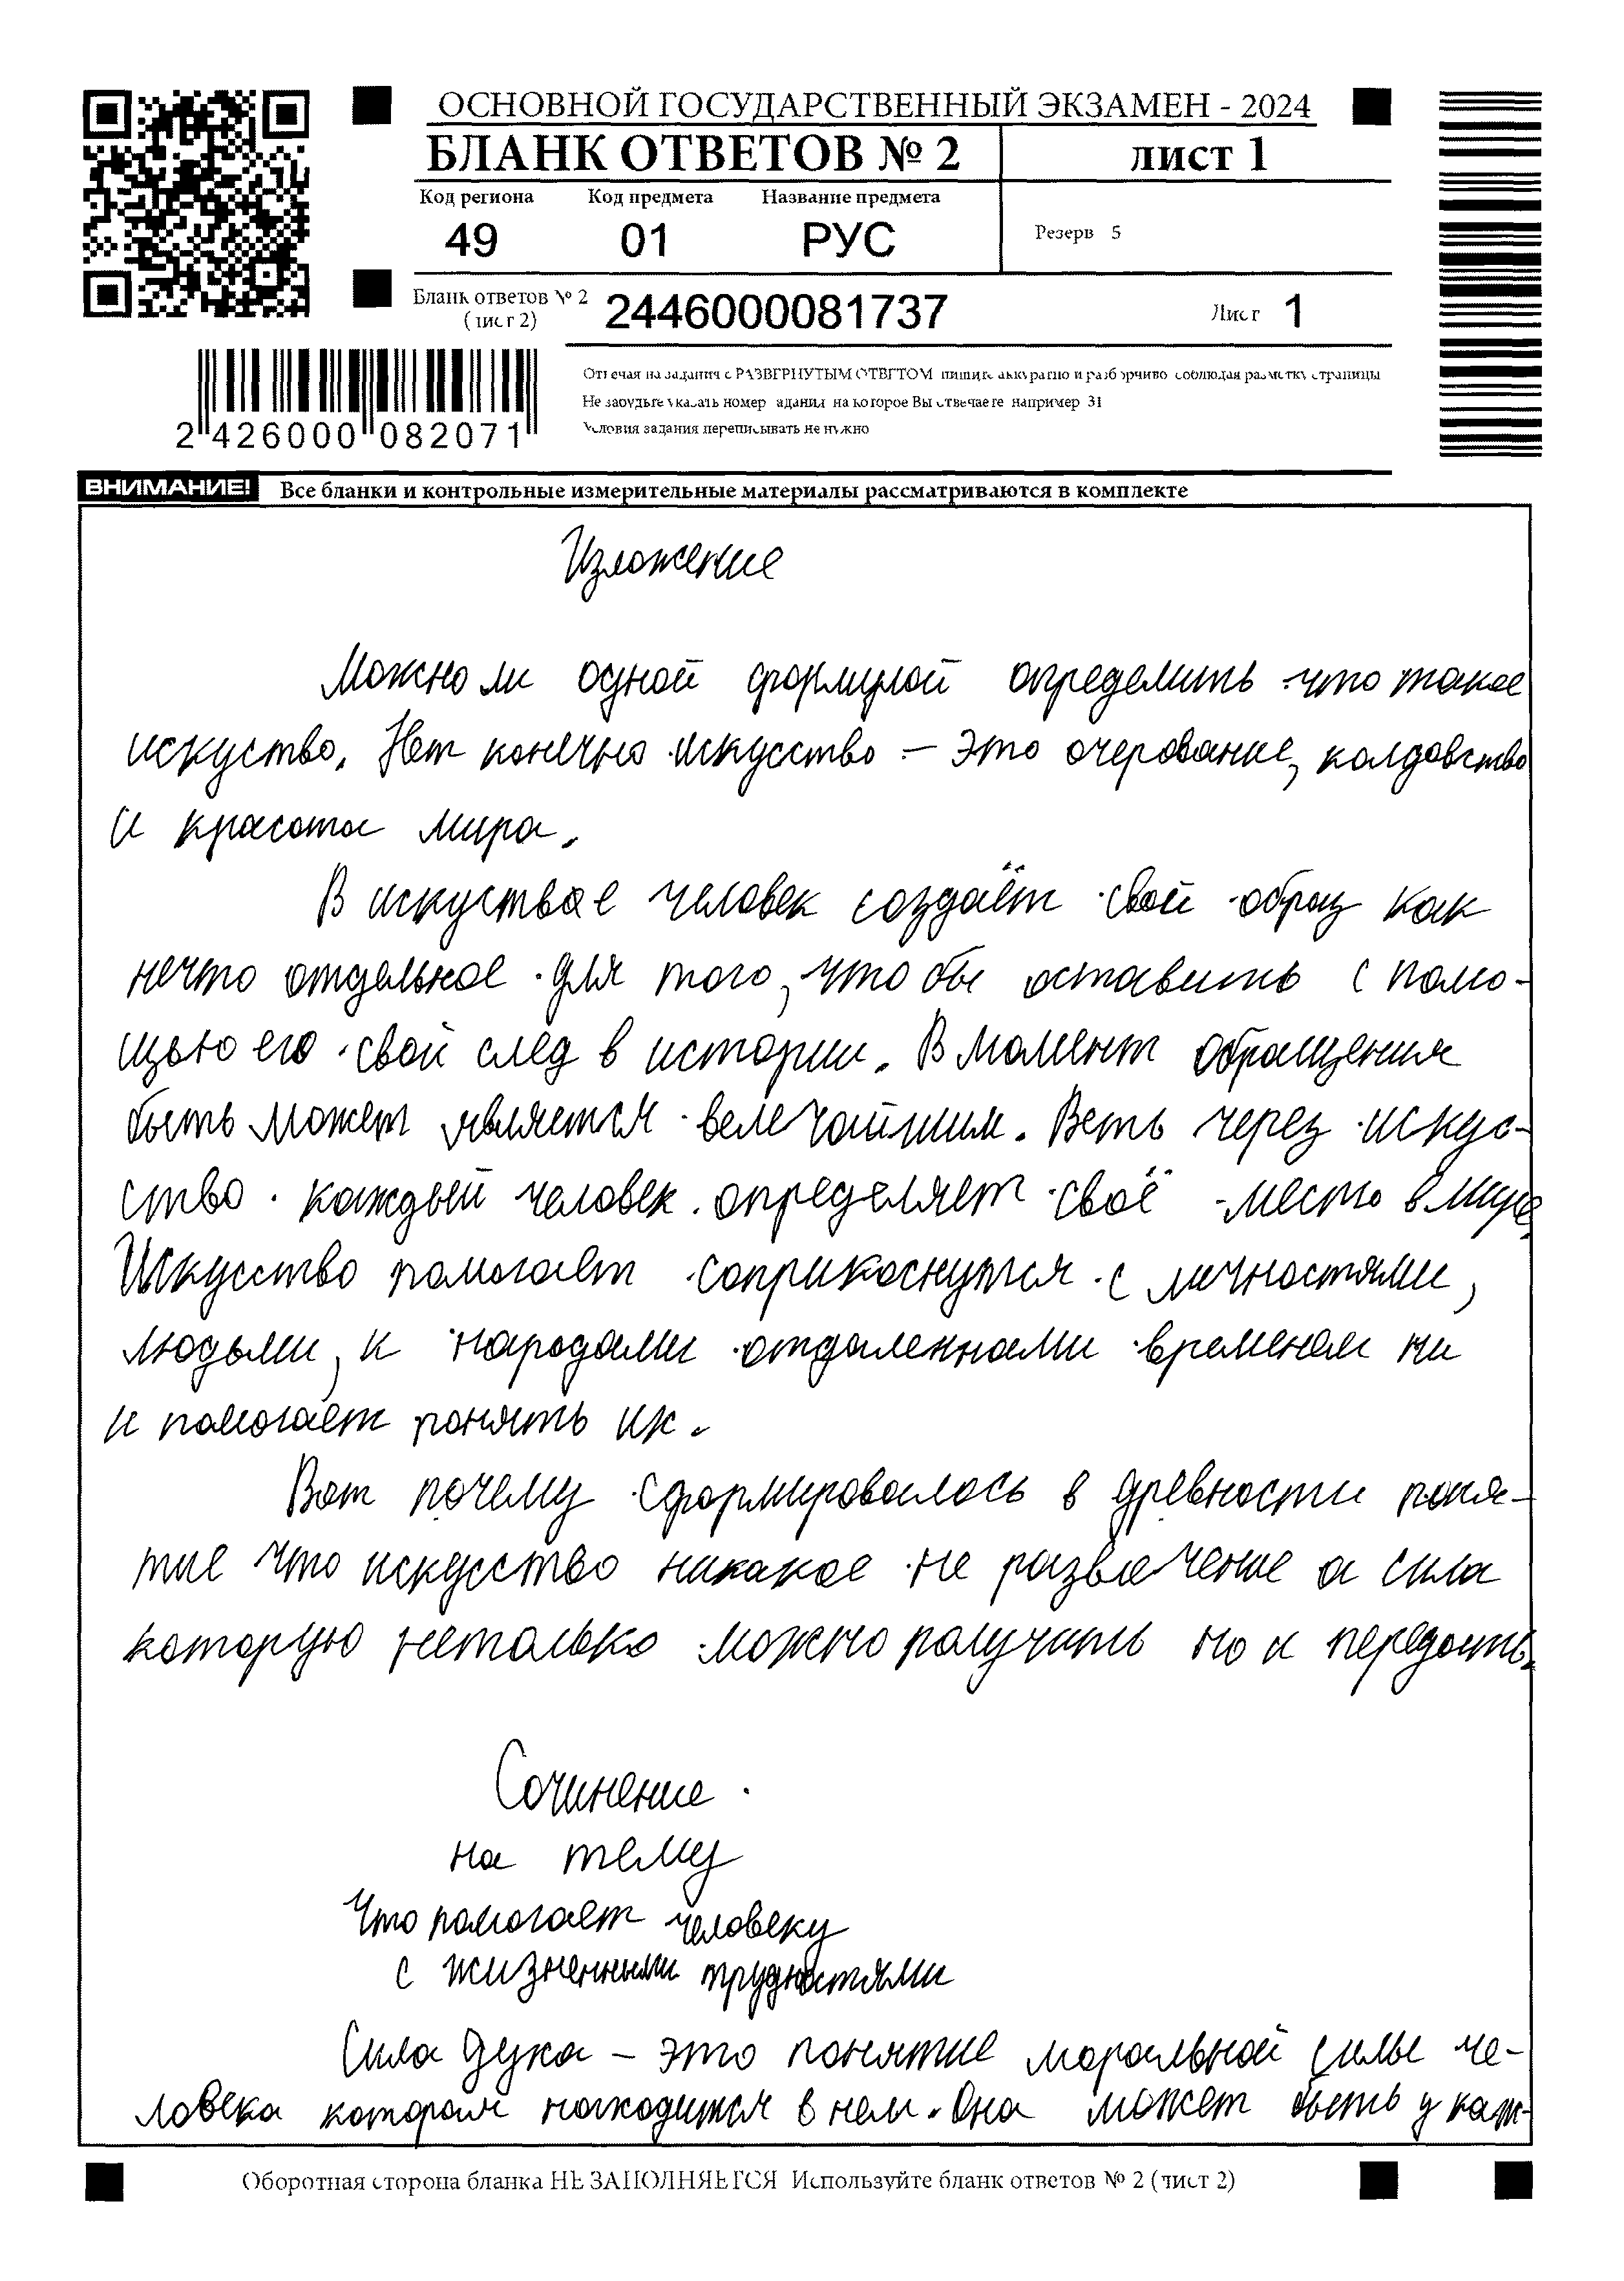 ОСНОВНОЙ ГОСУДАРСТВЕННЫЙ ЭКЗАМЕН - 2024
БЛАНК ОТВЕТОВ № 2 ЛИСТ 1
Код региона Код предмета Название предмета
49 01 РУС Резерв 5
Бланк ответов № 2 (лист 2) 2446000081737 Лист 1
Отвечая на задания с РАЗВЕРНУТЫМ ОТВЕТОМ пишите аккуратно и разборчиво соблюдая разметку страницы
Не забудьте указать номер задания на которое Вы отвечаете например 31
Условия задания переписывать не нужно
2 426000 082071
ВНИМАНИЕ! Все бланки и контрольные измерительные материалы рассматриваются в комплекте
Изложение
Можно ли одной формулой определить что такое
искуство. Нет конечно искусство – это очерование, колдовство
и красота мира.
В искуствае человек создаёт свой образ как
нечто отдельное для того, что бы оставить с помо-
щью его свой след в истории. В момент обращения
быть может является велечайшим. Веть через искус-
ство каждый человек определяет своё место в мире
Искусство помогает соприкоснутся с личностями,
людьми, и народами отдаленнами временам ни
и помогает понять их.
Вот почему сформировалось в древности поня-
тие что искусство никакое не развлечение а сила
которую нетолько можно получить но и передать.
Сочинение
на тему
Что помогает человеку
с жизненными трудностями
Сила духа – это понятие моральной силы че-
ловека которая находится в нем. Она может быть у каж-
Оборотная сторона бланка НЕ ЗАПОЛНЯЕТСЯ Используйте бланк ответов № 2 (лист 2)